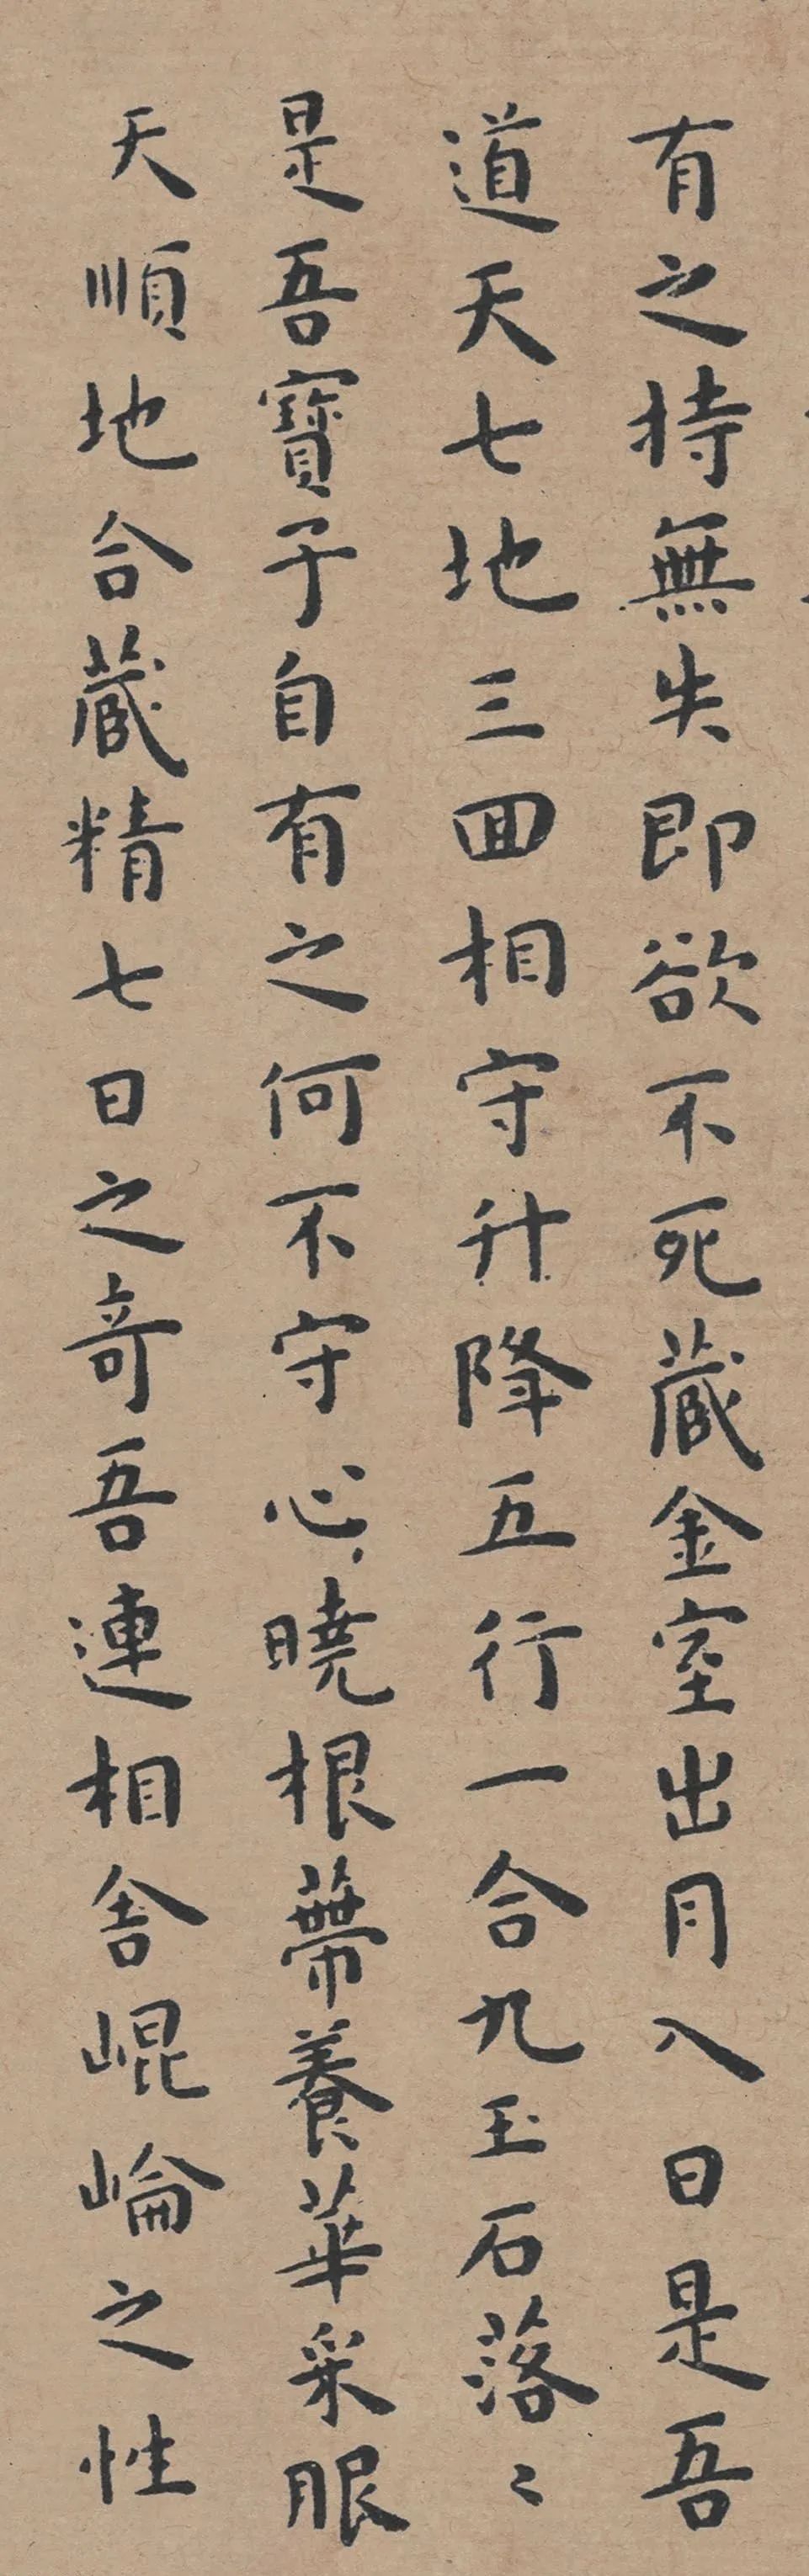 有之持無失即欲不死藏金室出月入日是吾
道天七地三回相守升降五行一合九玉石落〻
是吾寶子自有之何不守心曉根蔕養華采服
天順地合藏精七日之奇吾連相舍崐崘之性